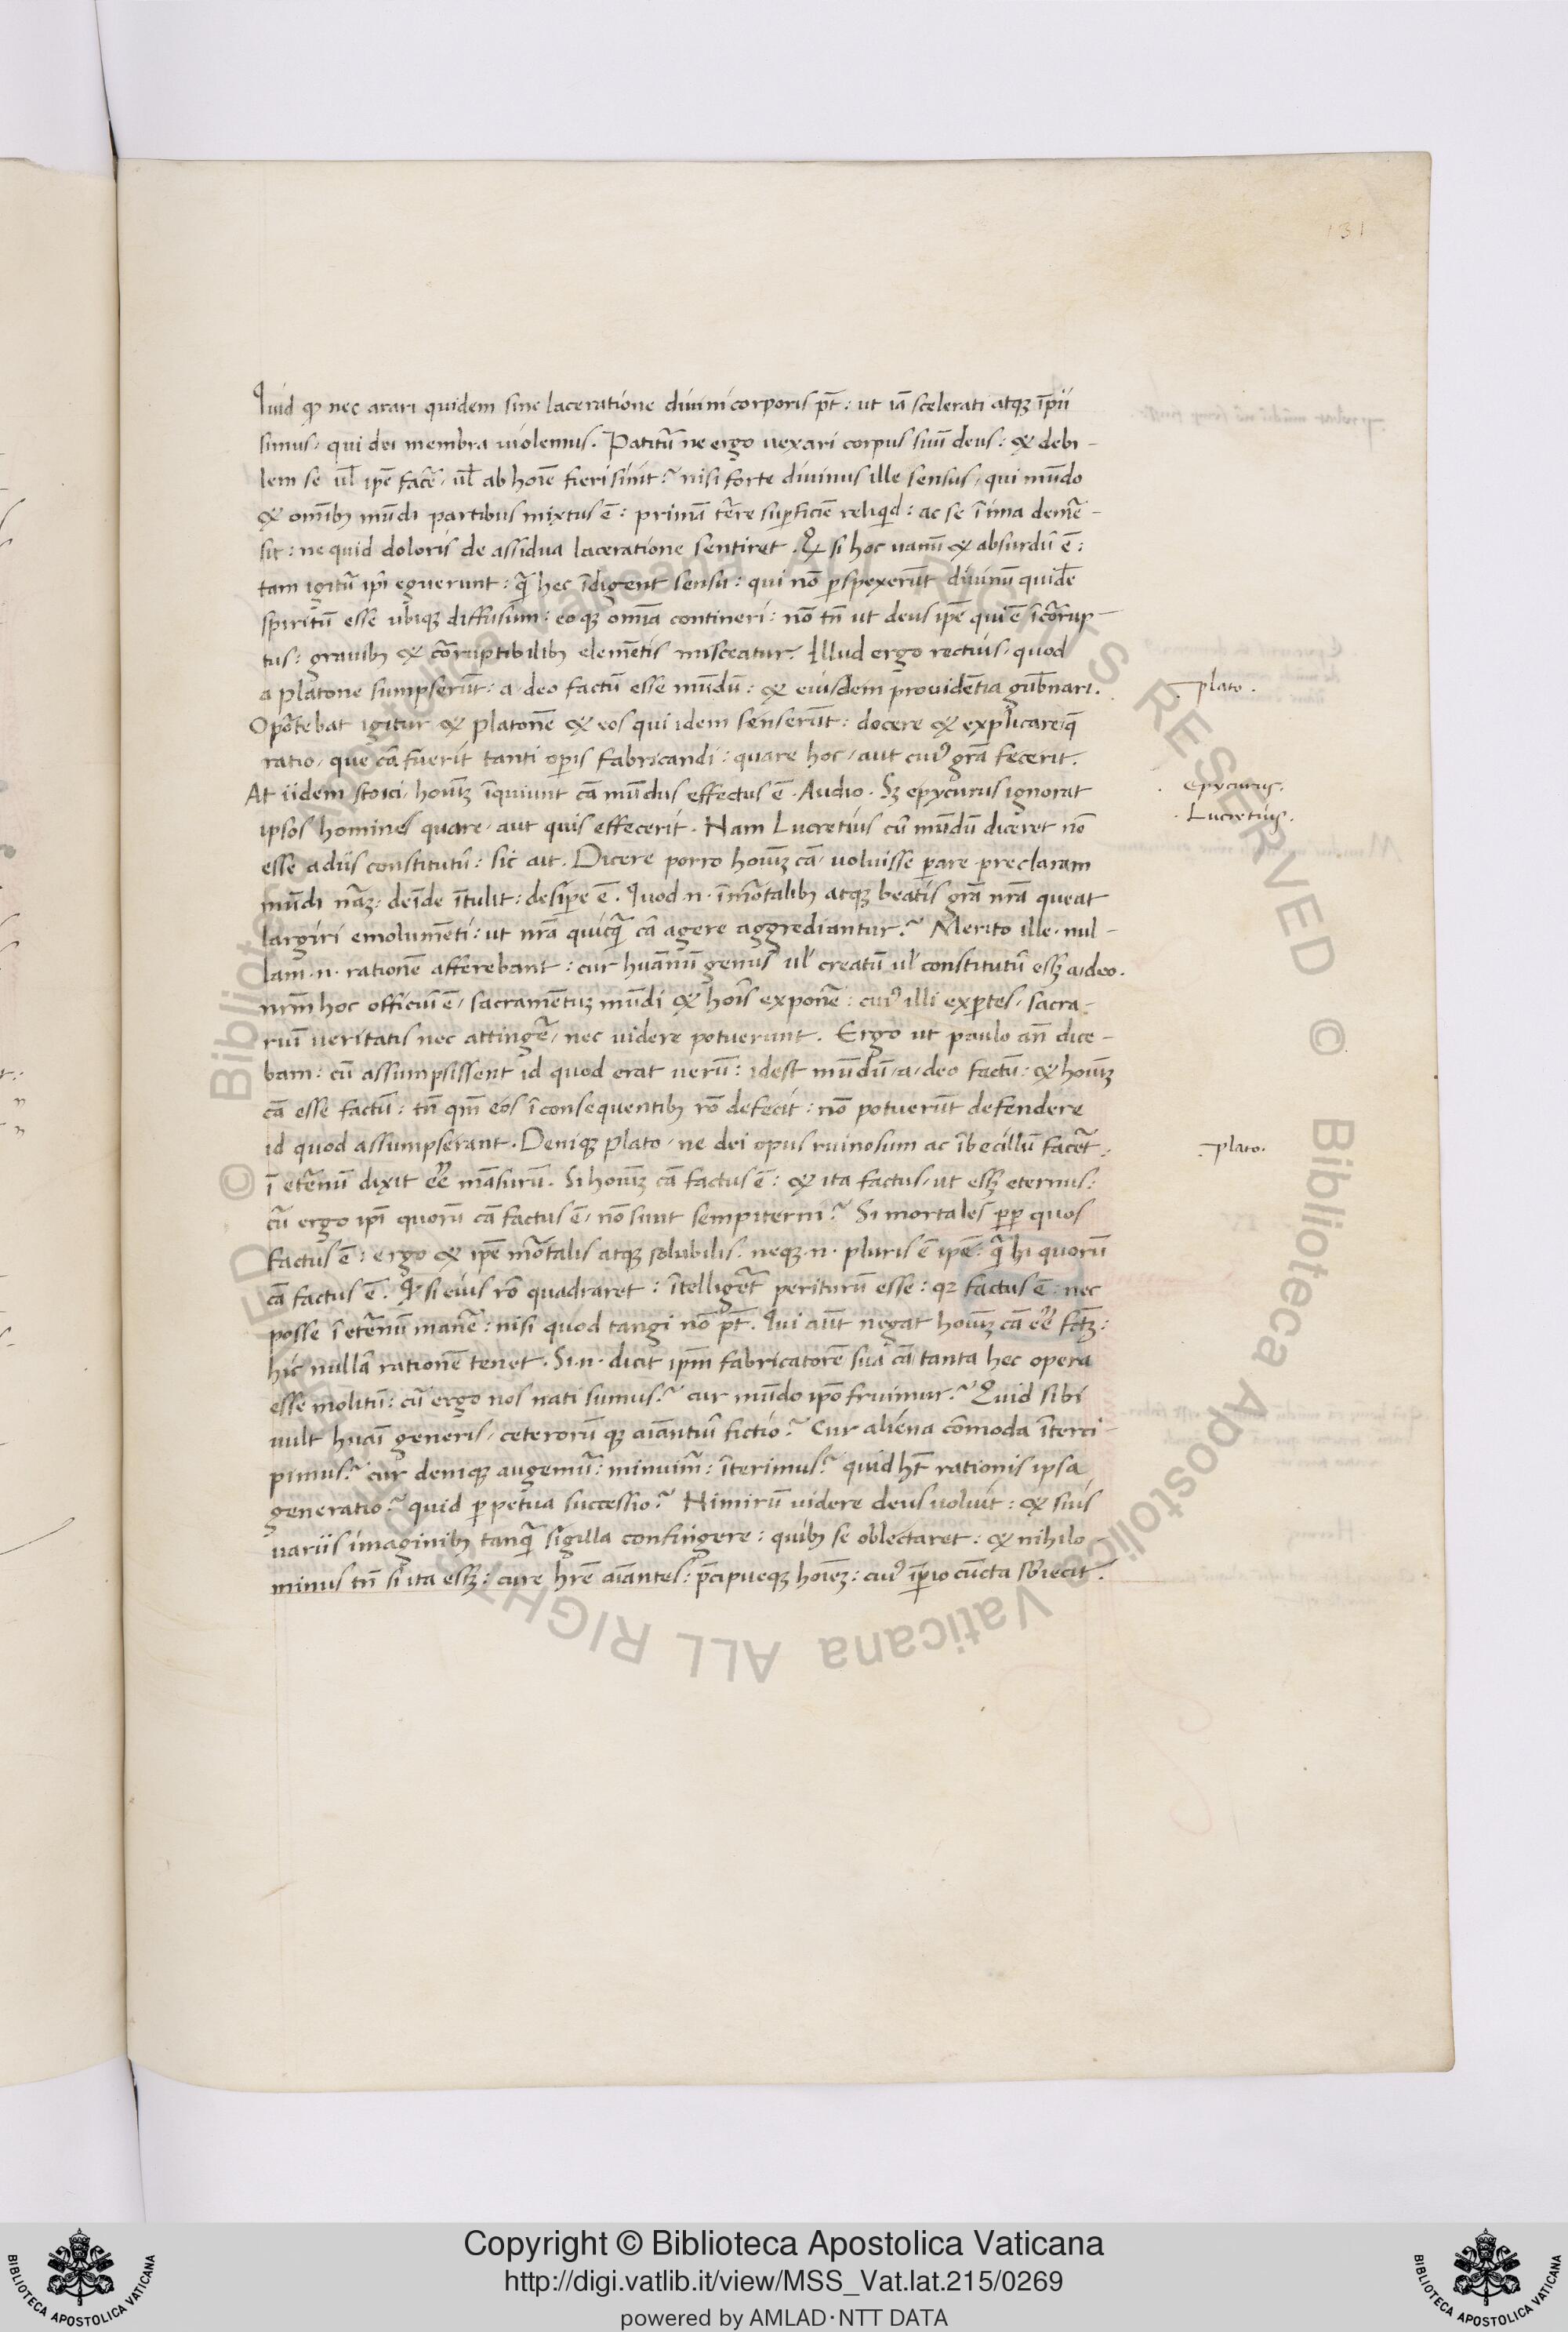 131
Quid qꝙ nec arari quidem sine laceratione diuini corporis pt̄: ut iā scelerati atqȝ īpii
simus: qui dei membra uiolemus. Patitur̄ ne ergo uexari corpus suū deus: & debi-
lem se ul̄ ipē facē, ul̄ ab hoīe fieri sinit? nisi forte diuinus ille sensus, qui mūdo
& omībȝ mūdi partibus mixtus ē: primā terre suꝑficiē reliqid: ac se ī ima demē-
sit: ne quid doloris de assidua laceratione sentiret. Qꝙ si hoc uanū & absurdū ē:
tam igitur̄ ipī eguerunt: q̄ hec īdigent sensu: qui nō ꝑspexerūt diuinū quidē
spiritū esse ubiqȝ diffusum: eoqȝ omīa contineri: nō tn̄ ut deus ipē qui ē īcorrup-
tus: grauibȝ & corruptibilibȝ elemētis misceatur. Illud ergo rectius, quod
a platone sumpserūt: a deo factū esse mūdū: & eiusdem prouidētia gub̄nari.
plato.
Oportebat igitur & platonē & eos qui idem senserūt: docere & explicare q̄
ratio, que cā fuerit tanti oꝑis fabricandi: quare hoc, aut cuiꝰ grā fecerit.
At iidem stoici, houīȝ īquiunt cā mūdus effectus ē. Audio. Sȝ epycurus ignorat
Epycurus.
ipsos homines quare, aut quis effecerit. Nam Lucretius cū mūdū diceret nō
Lucretius.
esse a diis constitutū: sic ait. Dicere porro houīȝ cā, uoluisse ꝑare preclaram
mūdi nāȝ: deīde ītulit: desiꝑe ē. Quod .n. īmortalibȝ atqȝ beatis grā nrā queat
largiri emolumēti: ut nrā quicq̄ cā agere aggrediantur? Merito ille. nul-
lam .n. rationē afferebant: cur huānū genus ul̄ creatū ul̄ constitutū essȝ a deo.
nrm̄ hoc officiū ē, sacramētuȝ mūdi & hoīs exponē: cuiꝰ illi exꝑtes, sacra-
riū ueritatis nec attingē, nec uidere potuerunt. Ergo ut paulo an̄ dice-
bam: cū assumpsissent id quod erat uerū: idest mūdū, a, deo factū: & houīȝ
cā esse factū: tn̄ qm̄ eos ī consequentibȝ rō defecit: nō potuerūt defendere
id quod assumpserant. Deniqȝ Plato, ne dei opus ruinosum ac ībecillū facēt:
plato.
ī eternū dixit eē māsurū. Si houīȝ cā factus ē: & ita factus, ut essȝ eternus:
cū ergo ipī quorū cā factus ē, nō sunt sempiterni? Si mortales ꝓpꝑ quos
factus ē: ergo & ipē mortalis atqȝ solubilis. neqȝ .n. pluris ē ipē: q̄ hi quorū
cā factus ē. Qꝙ si eius rō quadraret: ītelligēt periturū esse: qꝛ factus ē: nec
posse ī eternū manē: nisi quod tangi nō pt̄. Qui aut̄ negat houīȝ cā eē fctȝ:
hic nullā rationē tenet. Si .n. dicit ipm̄ fabricatorē sua cā tanta hec opera
esse molitū: cū ergo nos nati sumus? cur mūdo ipō fruimur? Quid sibi
uult huāi generis, ceterorū qȝ aīantiū fictio? Cur aliena cōmoda īterci-
pimus? cur deniqȝ augemur̄: minuimr̄: īterimus? quid ht̄ rationis ipsa
generatio? quid ꝑpetua successio? Nimirū uidere deus uoluit: & suis
uariis imaginibȝ tanq̄ sigilla confingere: quibȝ se oblectaret: & nihilo
minus tn̄ si ita essȝ: cure hr̄e aīantes: p̄cipueqȝ hoīeȝ: cuiꝰ īꝑio cūcta sb̄iecit.
Copyright © Biblioteca Apostolica Vaticana
http://digi.vatlib.it/view/MSS_Vat.lat.215/0269
powered by AMLAD·NTT DATA